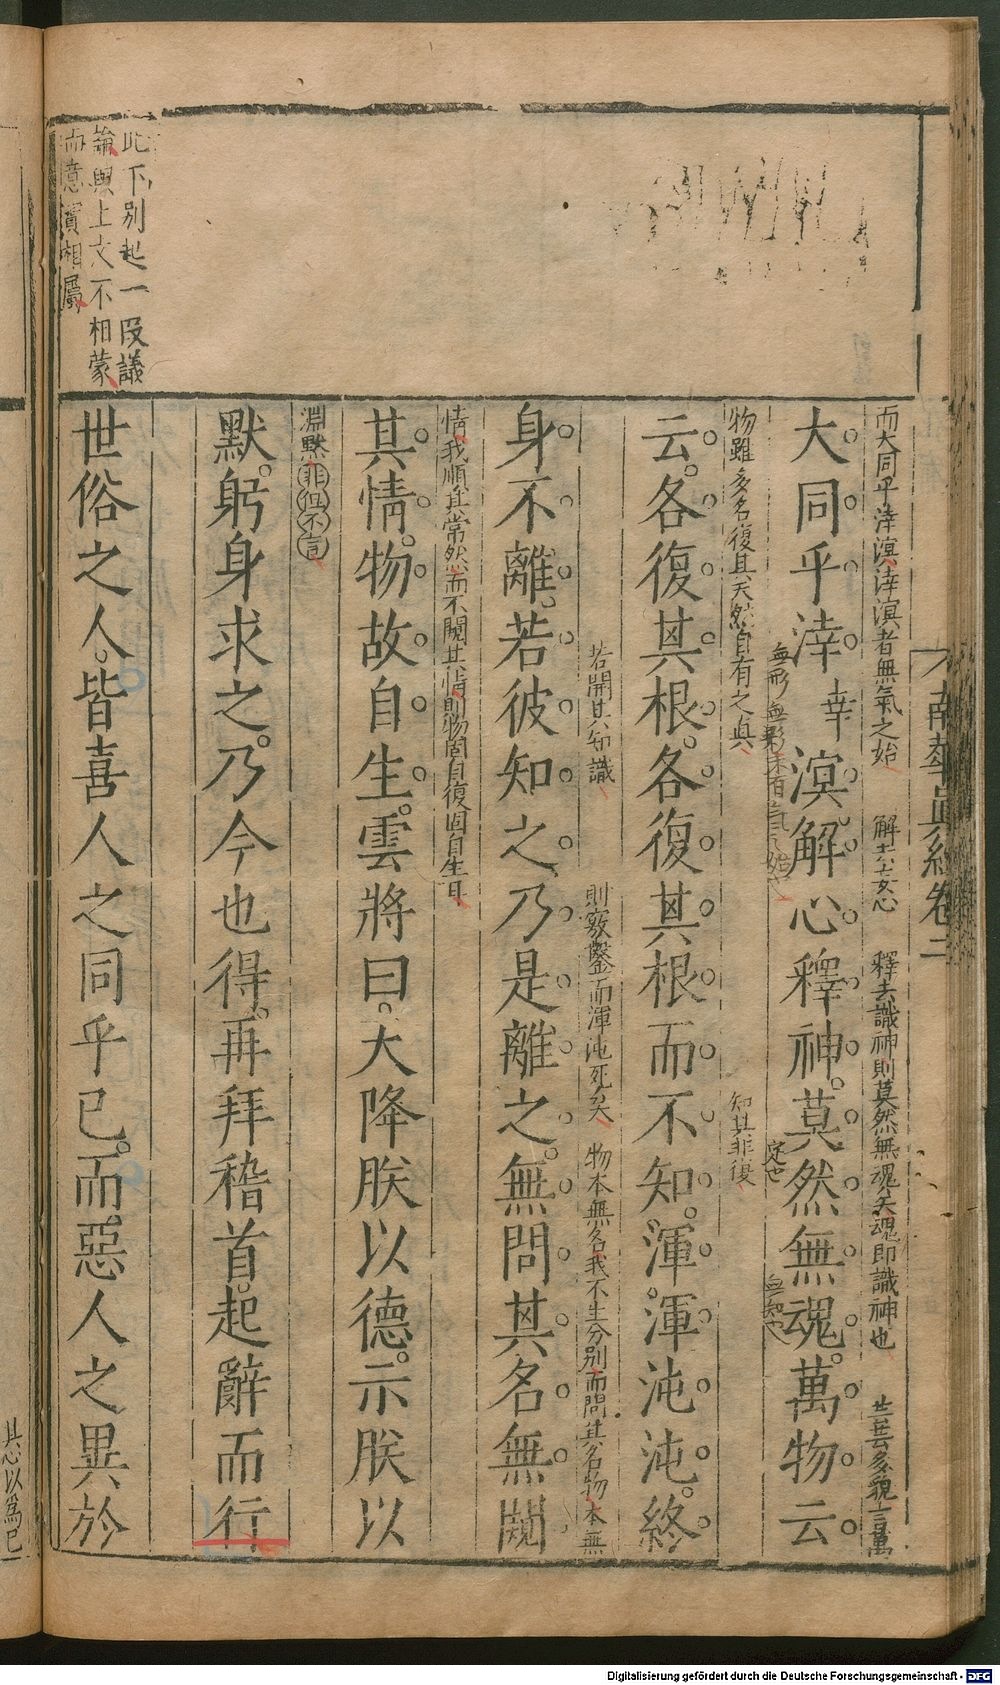 南華眞經卷二
而大同乎涬溟涬溟者無氣之始 解去玄心 釋去識神則莫然無魂矣魂即識神也 芸芸多貌言萬
大同乎涬溟解心釋神莫然無魂萬物云
幸
無形無影未有氣之始也 定也 無知也
物雖多各復其天然自有之眞 知其非復
云各復其根各復其根而不知渾渾沌沌終
若開其知識 則竅鑿而渾沌死矣 物本無名我不生分別而問其名物本無
身不離若彼知之乃是離之無問其名無闚
情我順其常然而不闚其情則物固自復固自生耳
其情物故自生雲將曰大降朕以德示朕以
淵默非但不言
默躬身求之乃今也得再拜稽首起辭而行
世俗之人皆喜人之同乎已而惡人之異於
此下別起一段議
論與上文不相蒙
而意實相屬
其心以爲已
Digitalisierung gefördert durch die Deutsche Forschungsgemeinschaft - DFG